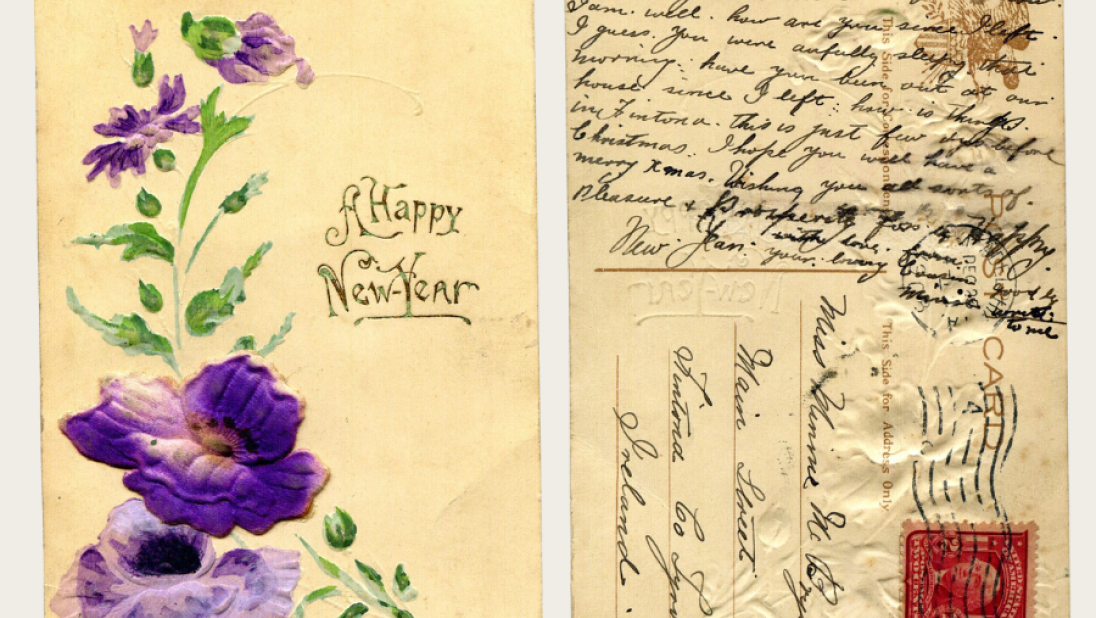 A Happy
New-Year
I am. well. how are you since I left.
I guess. you were awfully sleepy that
morning. have you been out at our
house since I left. how is things.
in Fintona. this is just few days before
Christmas. I hope you will have a
merry Xmas. Wishing you all sorts of.
Pleasure & Prosperity for a Happy.
New. Year. your. loving
with love. from
Cousin
Minnie
good by
write
to me
This Side for Correspondence
POST CARD
DEC
This Side for Address Only
Miss Minnie Mc
Main Street
Fintona Co Tyrone
Ireland.